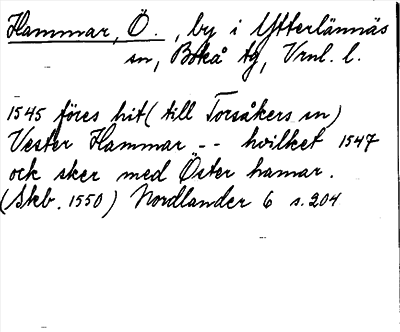 Hammar, Ö., by i Ytterlännäs
sn, Boteå tg, Vrnl. l.
1545 föres hit (till Torsåkers sn)
Vester Hammar -- hvilket 1547
ock sker med Öster hamar.
(Skb. 1550) Nordlander 6 s. 204